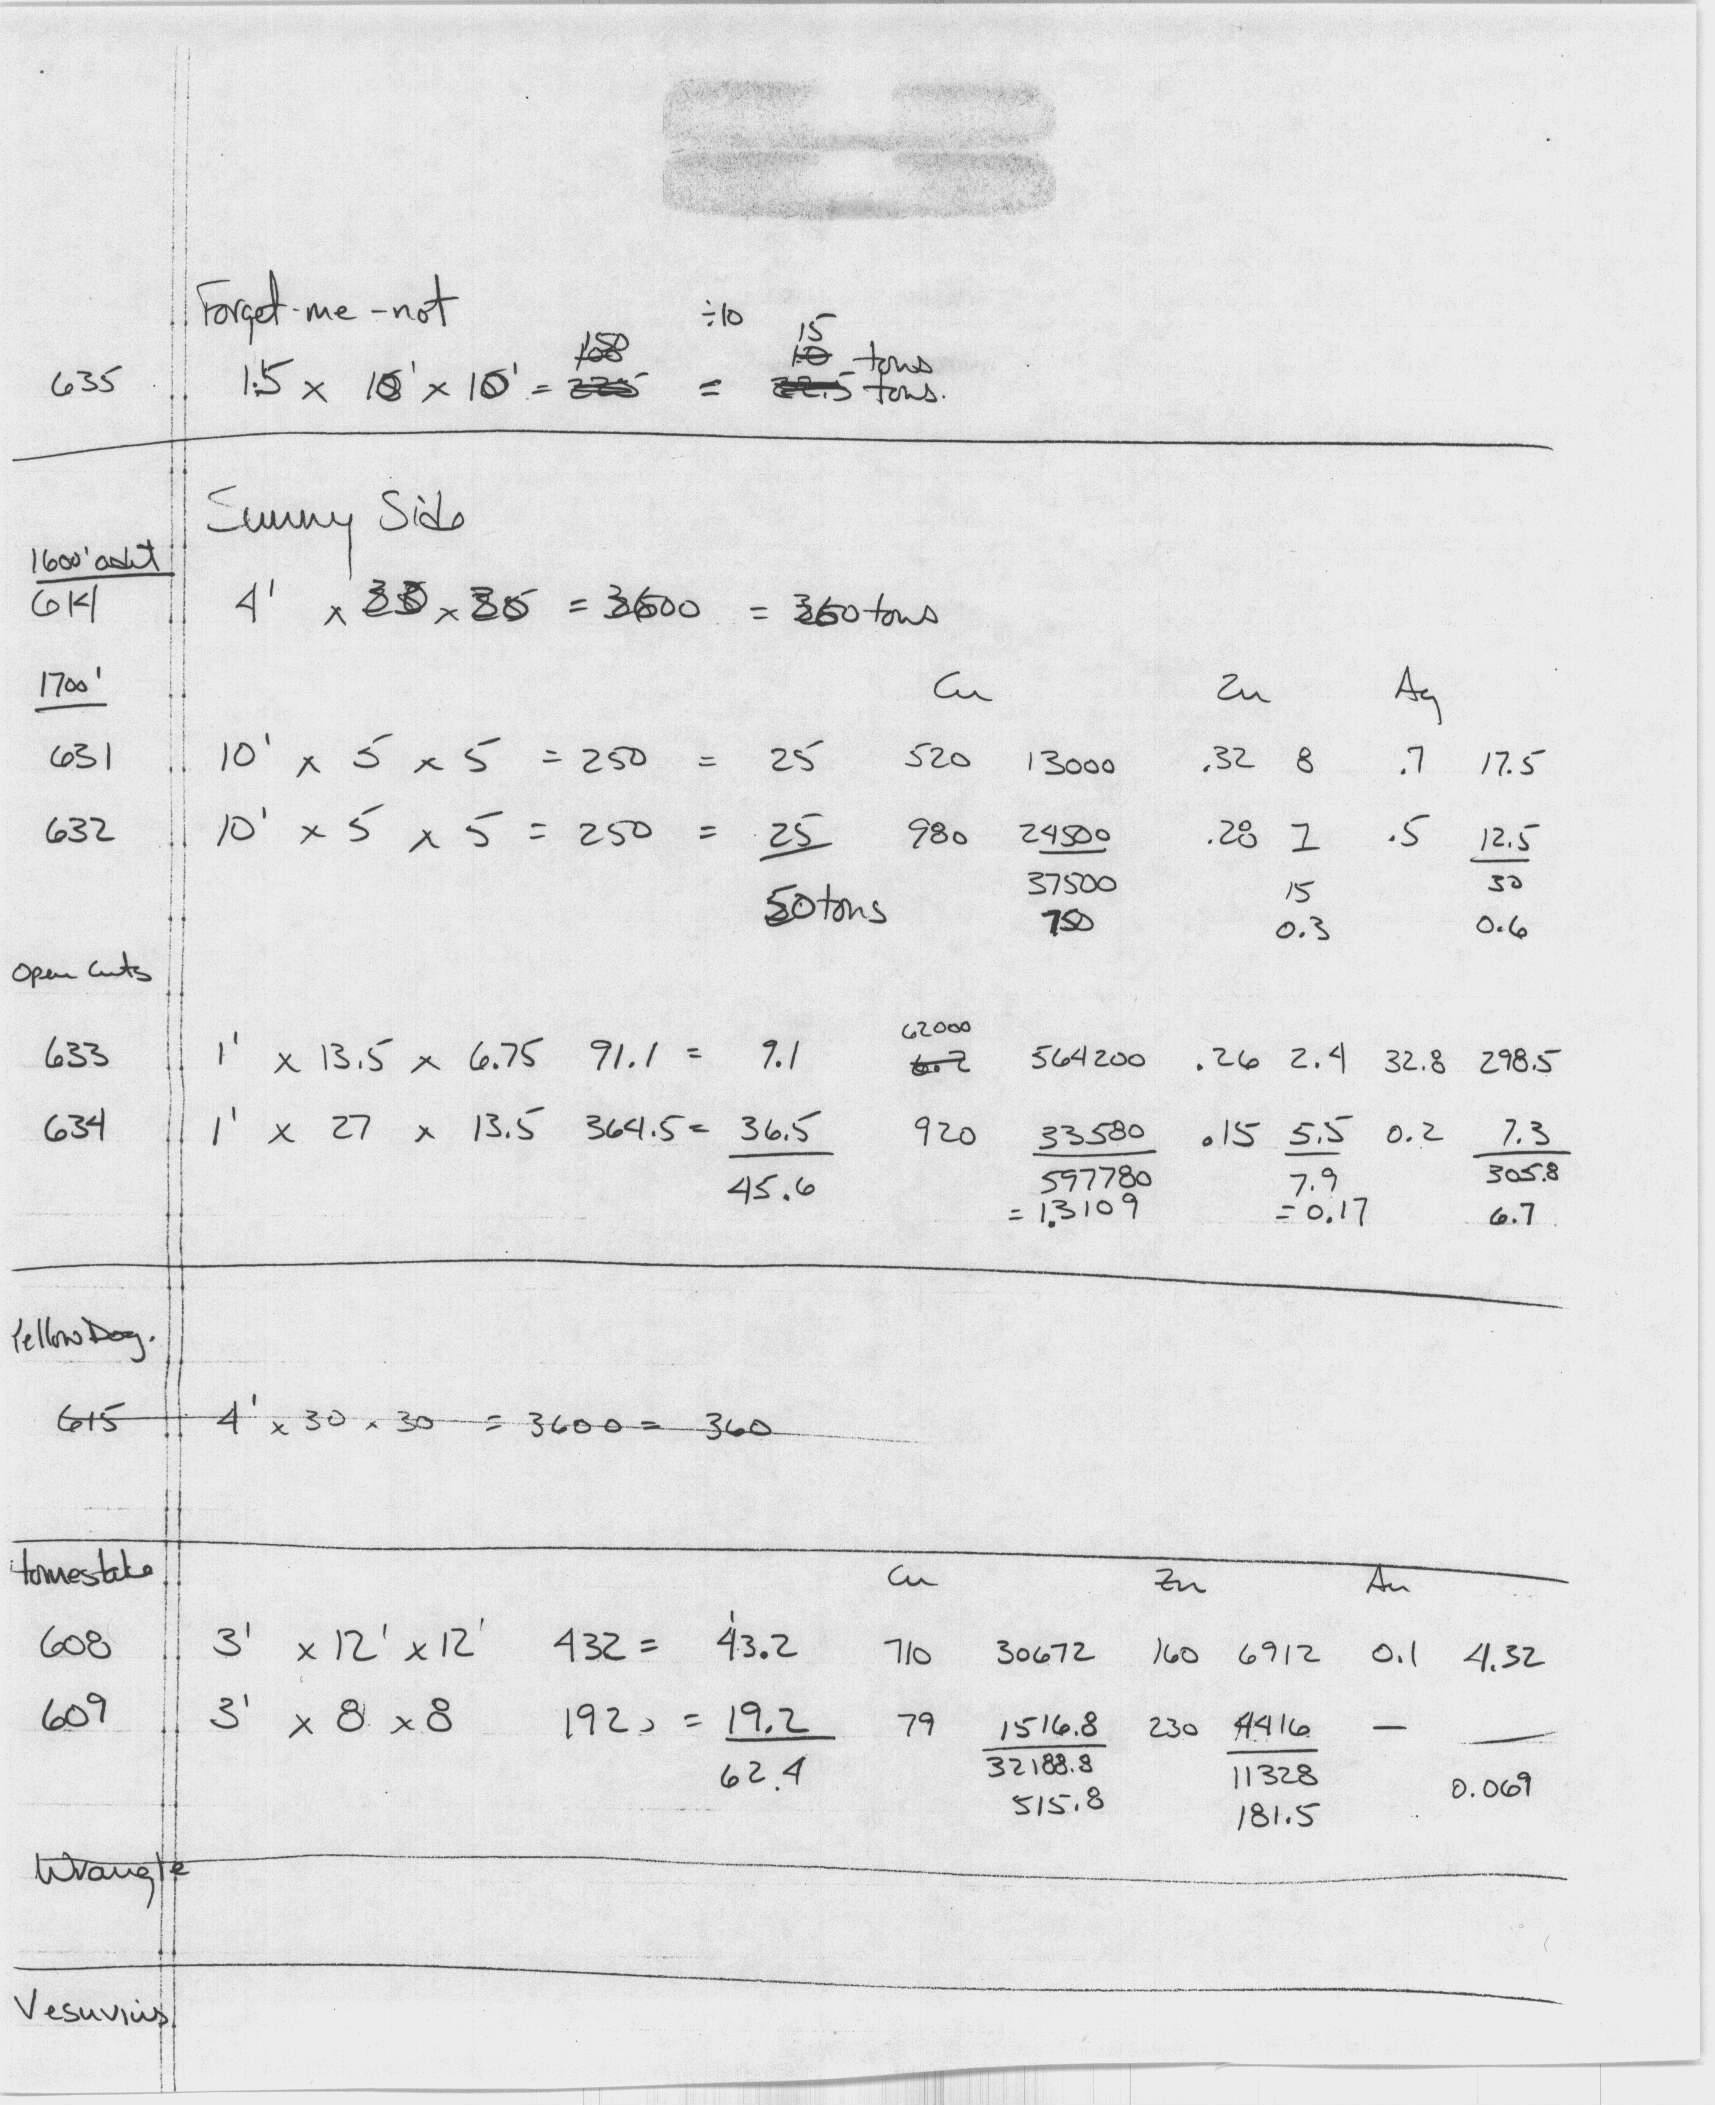 Forget-me-not ÷10
150 15
100 10 tons
635 1.5 x 10' x 10' = 225 = 22.5 tons.
Sunny Side
1600' adit
614 4' x 30 x 30 = 3600 = 360 tons
1700' Cu Zn Ag
631 10' x 5 x 5 = 250 = 25 520 13000 .32 8 .7 17.5
632 10' x 5 x 5 = 250 = 25 980 24500 .28 7 .5 12.5
37500 15 30
50 tons 750 0.3 0.6
Open Cuts
62000
633 1' x 13.5 x 6.75 91.1 = 9.1 6.2 564200 .26 2.4 32.8 298.5
634 1' x 27 x 13.5 364.5 = 36.5 920 33580 .15 5.5 0.2 7.3
45.6 597780 7.9 305.8
= 1.3109 = 0.17 6.7
Yellow Dog.
615 4' x 30 x 30 = 3600 = 360
Homestake Cu Zn Au
608 3' x 12' x 12' 432 = 43.2 710 30672 160 6912 0.1 4.32
609 3' x 8 x 8 192 = 19.2 79 1516.8 230 4416 — —
62.4 32188.8 11328 0.069
515.8 181.5
Wrangle
Vesuvius